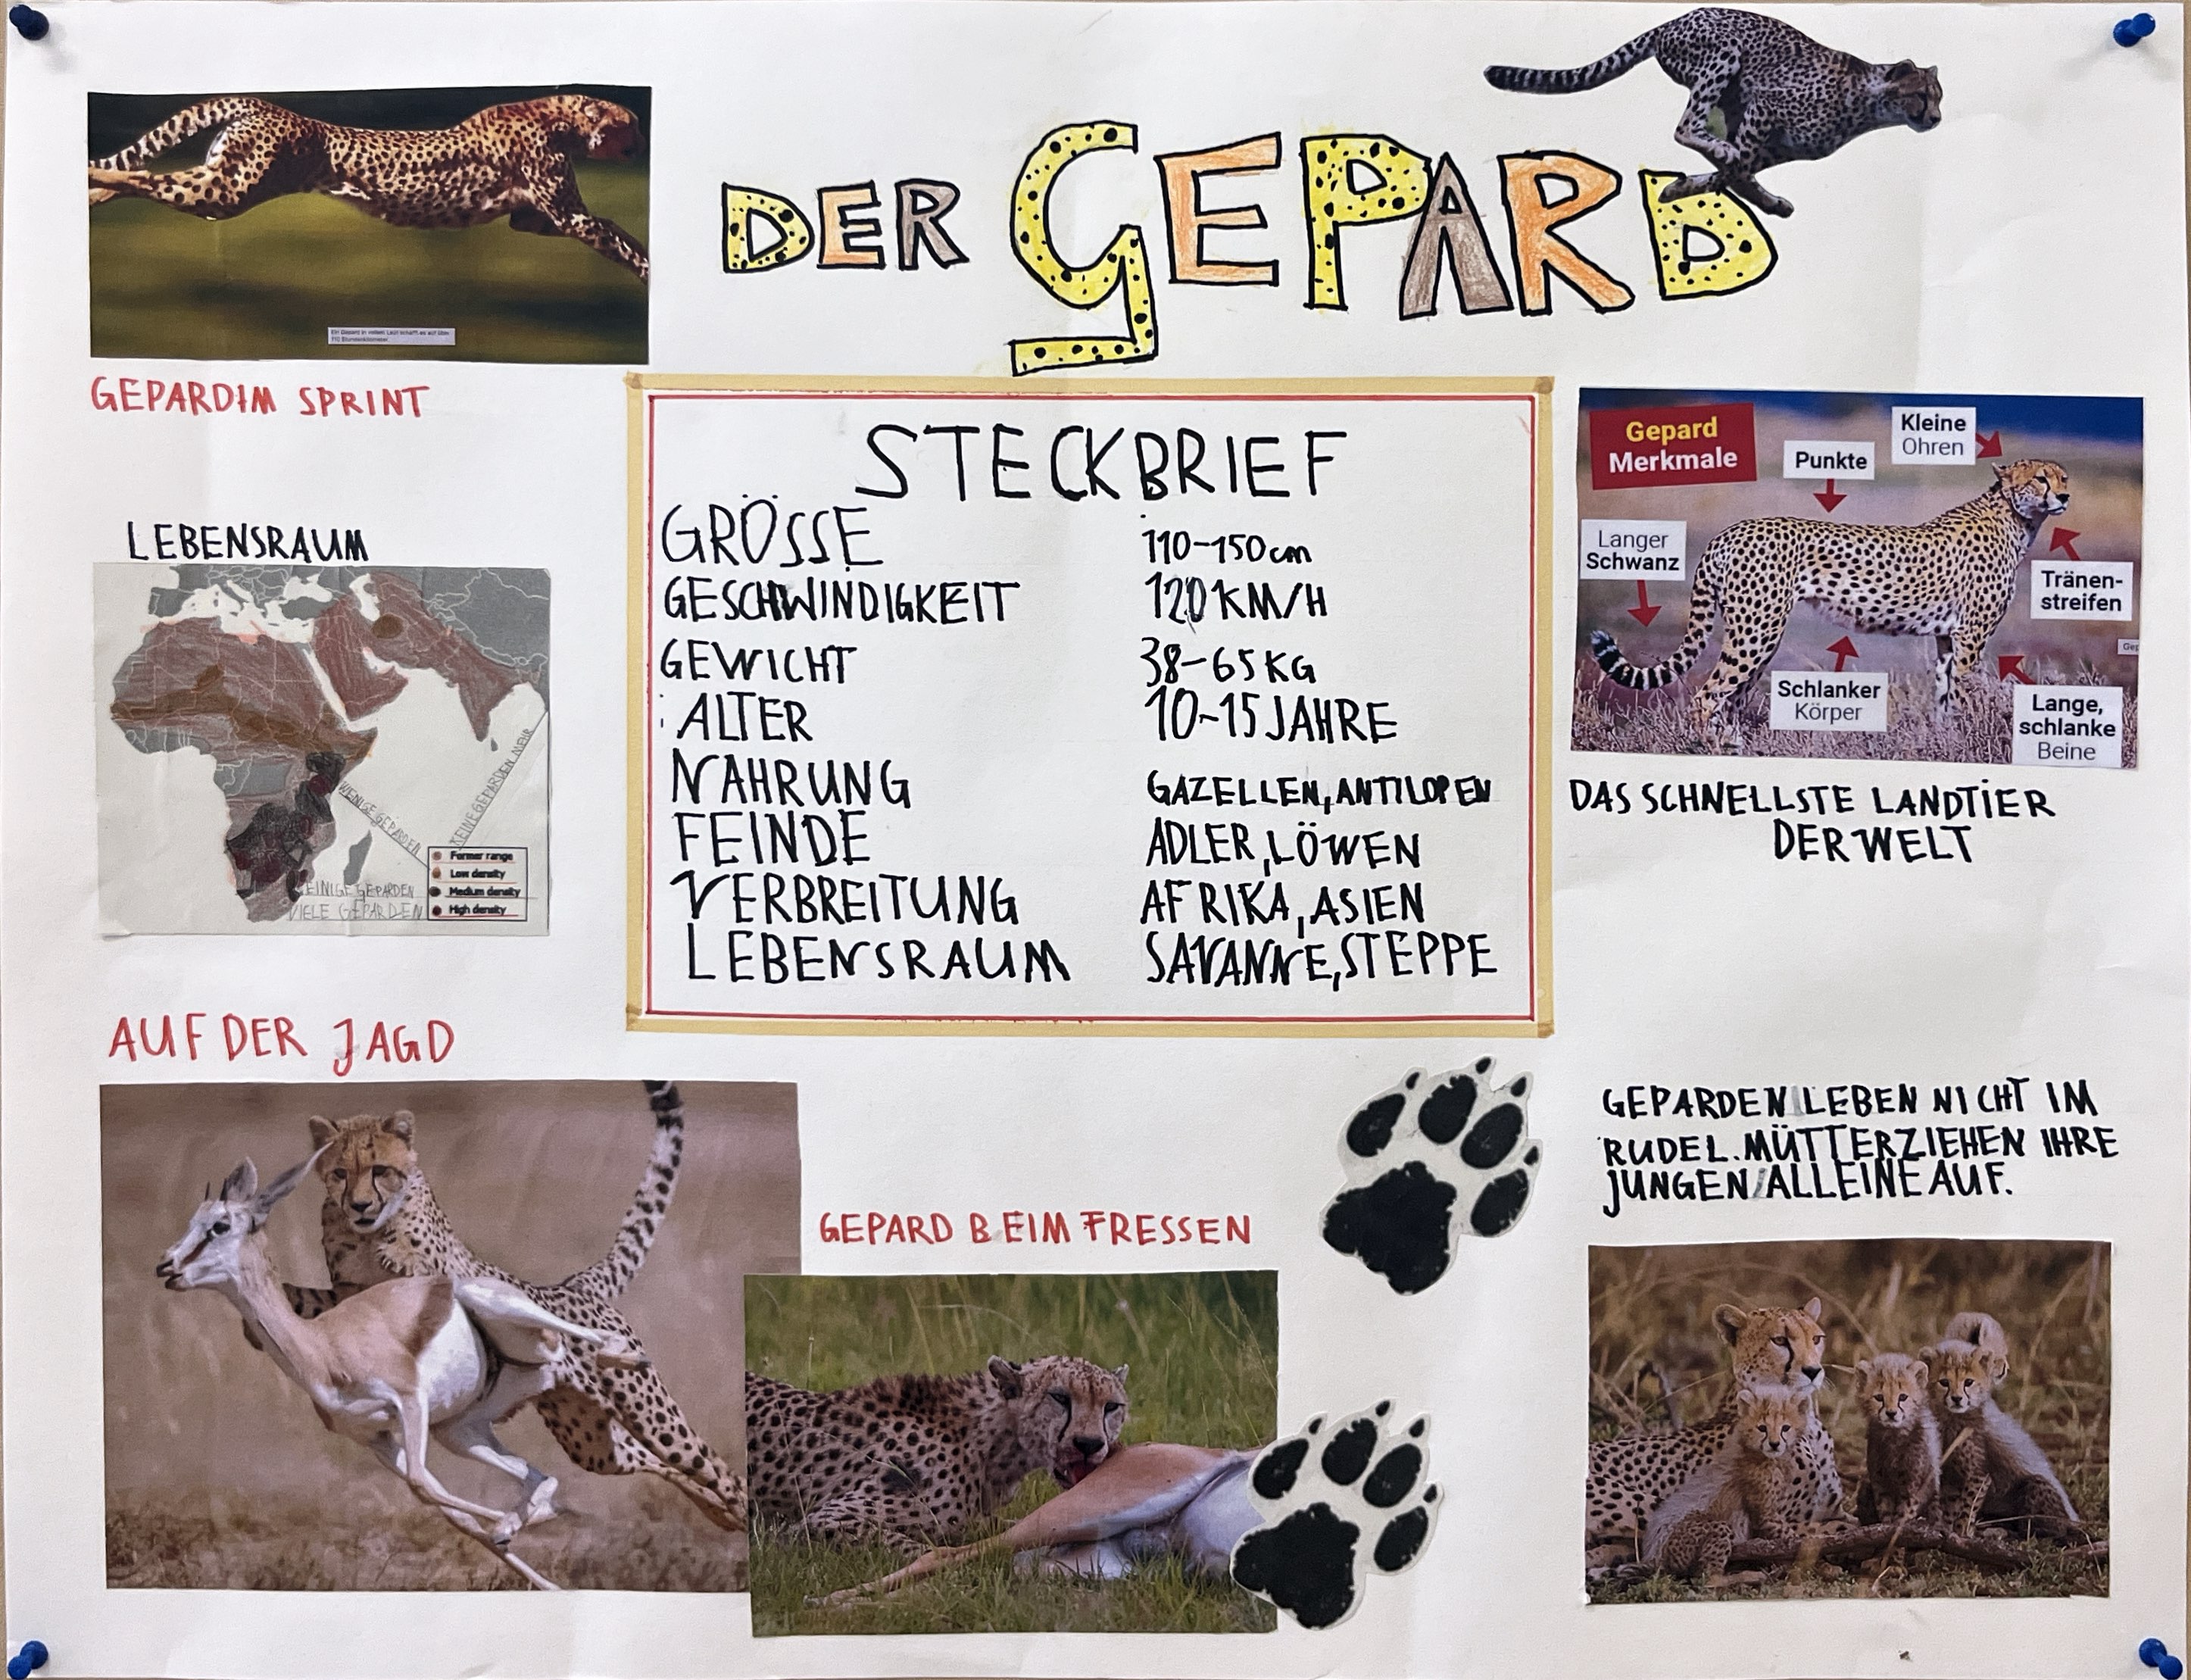 DER GEPARD
Ein Gepard in vollem Lauf schafft es auf über
110 Stundenkilometer.
GEPARD IM SPRINT
LEBENSRAUM
WENIGE GEPARDEN
KEINE GEPARDEN MEHR
EINIGE GEPARDEN
VIELE GEPARDEN
Former range
Low density
Medium density
High density
STECKBRIEF
GRÖSSE 110-150cm
GESCHWINDIGKEIT 120KM/H
GEWICHT 38-65KG
ALTER 10-15 JAHRE
NAHRUNG GAZELLEN, ANTILOPEN
FEINDE ADLER, LÖWEN
VERBREITUNG AFRIKA, ASIEN
LEBENSRAUM SAVANNE, STEPPE
Gepard
Merkmale
Punkte
Kleine
Ohren
Langer
Schwanz
Tränen-
streifen
Gep
Schlanker
Körper
Lange,
schlanke
Beine
DAS SCHNELLSTE LANDTIER
DER WELT
AUF DER JAGD
GEPARD BEIM FRESSEN
GEPARDEN LEBEN NICHT IM
RUDEL. MÜTTER ZIEHEN IHRE
JUNGEN ALLEINE AUF.